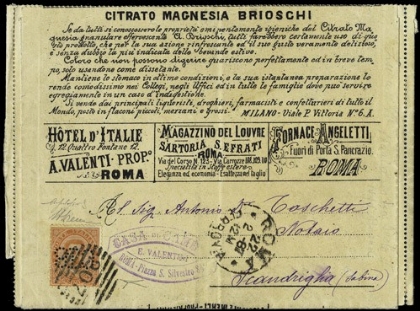 CITRATO MAGNESIA BRIOSCHI
Se da tutti si conoscessero le proprietà igieniche del Citrato Ma
gnesia granulare effervescente A. Brioschi, tutti farebbero costante uso di que
sto prodotto, che per la sua azione rinfrescante ed il suo gusto veramente delizioso,
è senza dubbio la più indicata delle bevande estive.
Coloro che non possono digerire guariscono perfettamente ed in breve tem
po, solo usandone come dissetante.
Mantiene lo stomaco in ottime condizioni, e la sua istantanea preparazione lo
rende comodissimo nei Collegi, negli Uffici ed in tutte le famiglie dove può servire
egregiamente in un caso d'indigestione.
Si vende dai principali liquoristi, droghieri, farmacisti e confetturieri di tutto il
Mondo, posto in flaconi piccoli, mezzani e grossi.
MILANO - Viale P. Vittoria Nº 6. A.
HÔTEL D'ITALIE
Quattro Fontane 12.
A. VALENTI - PROPº
ROMA
MAGAZZINO DEL LOUVRE
SARTORIA S. EFRATI
ROMA
Via del Corso N. 125 - Via Convertite
Eleganza ed economia
FORNACE ANGELETTI
Fuori di Porta S. Pancrazio.
ROMA
Al Sig. Antonio Coschetti
Notaio
ROMA
E. VALENTINI
ROMA - Piazza S. Silvestro
Scandriglia (Sabina)